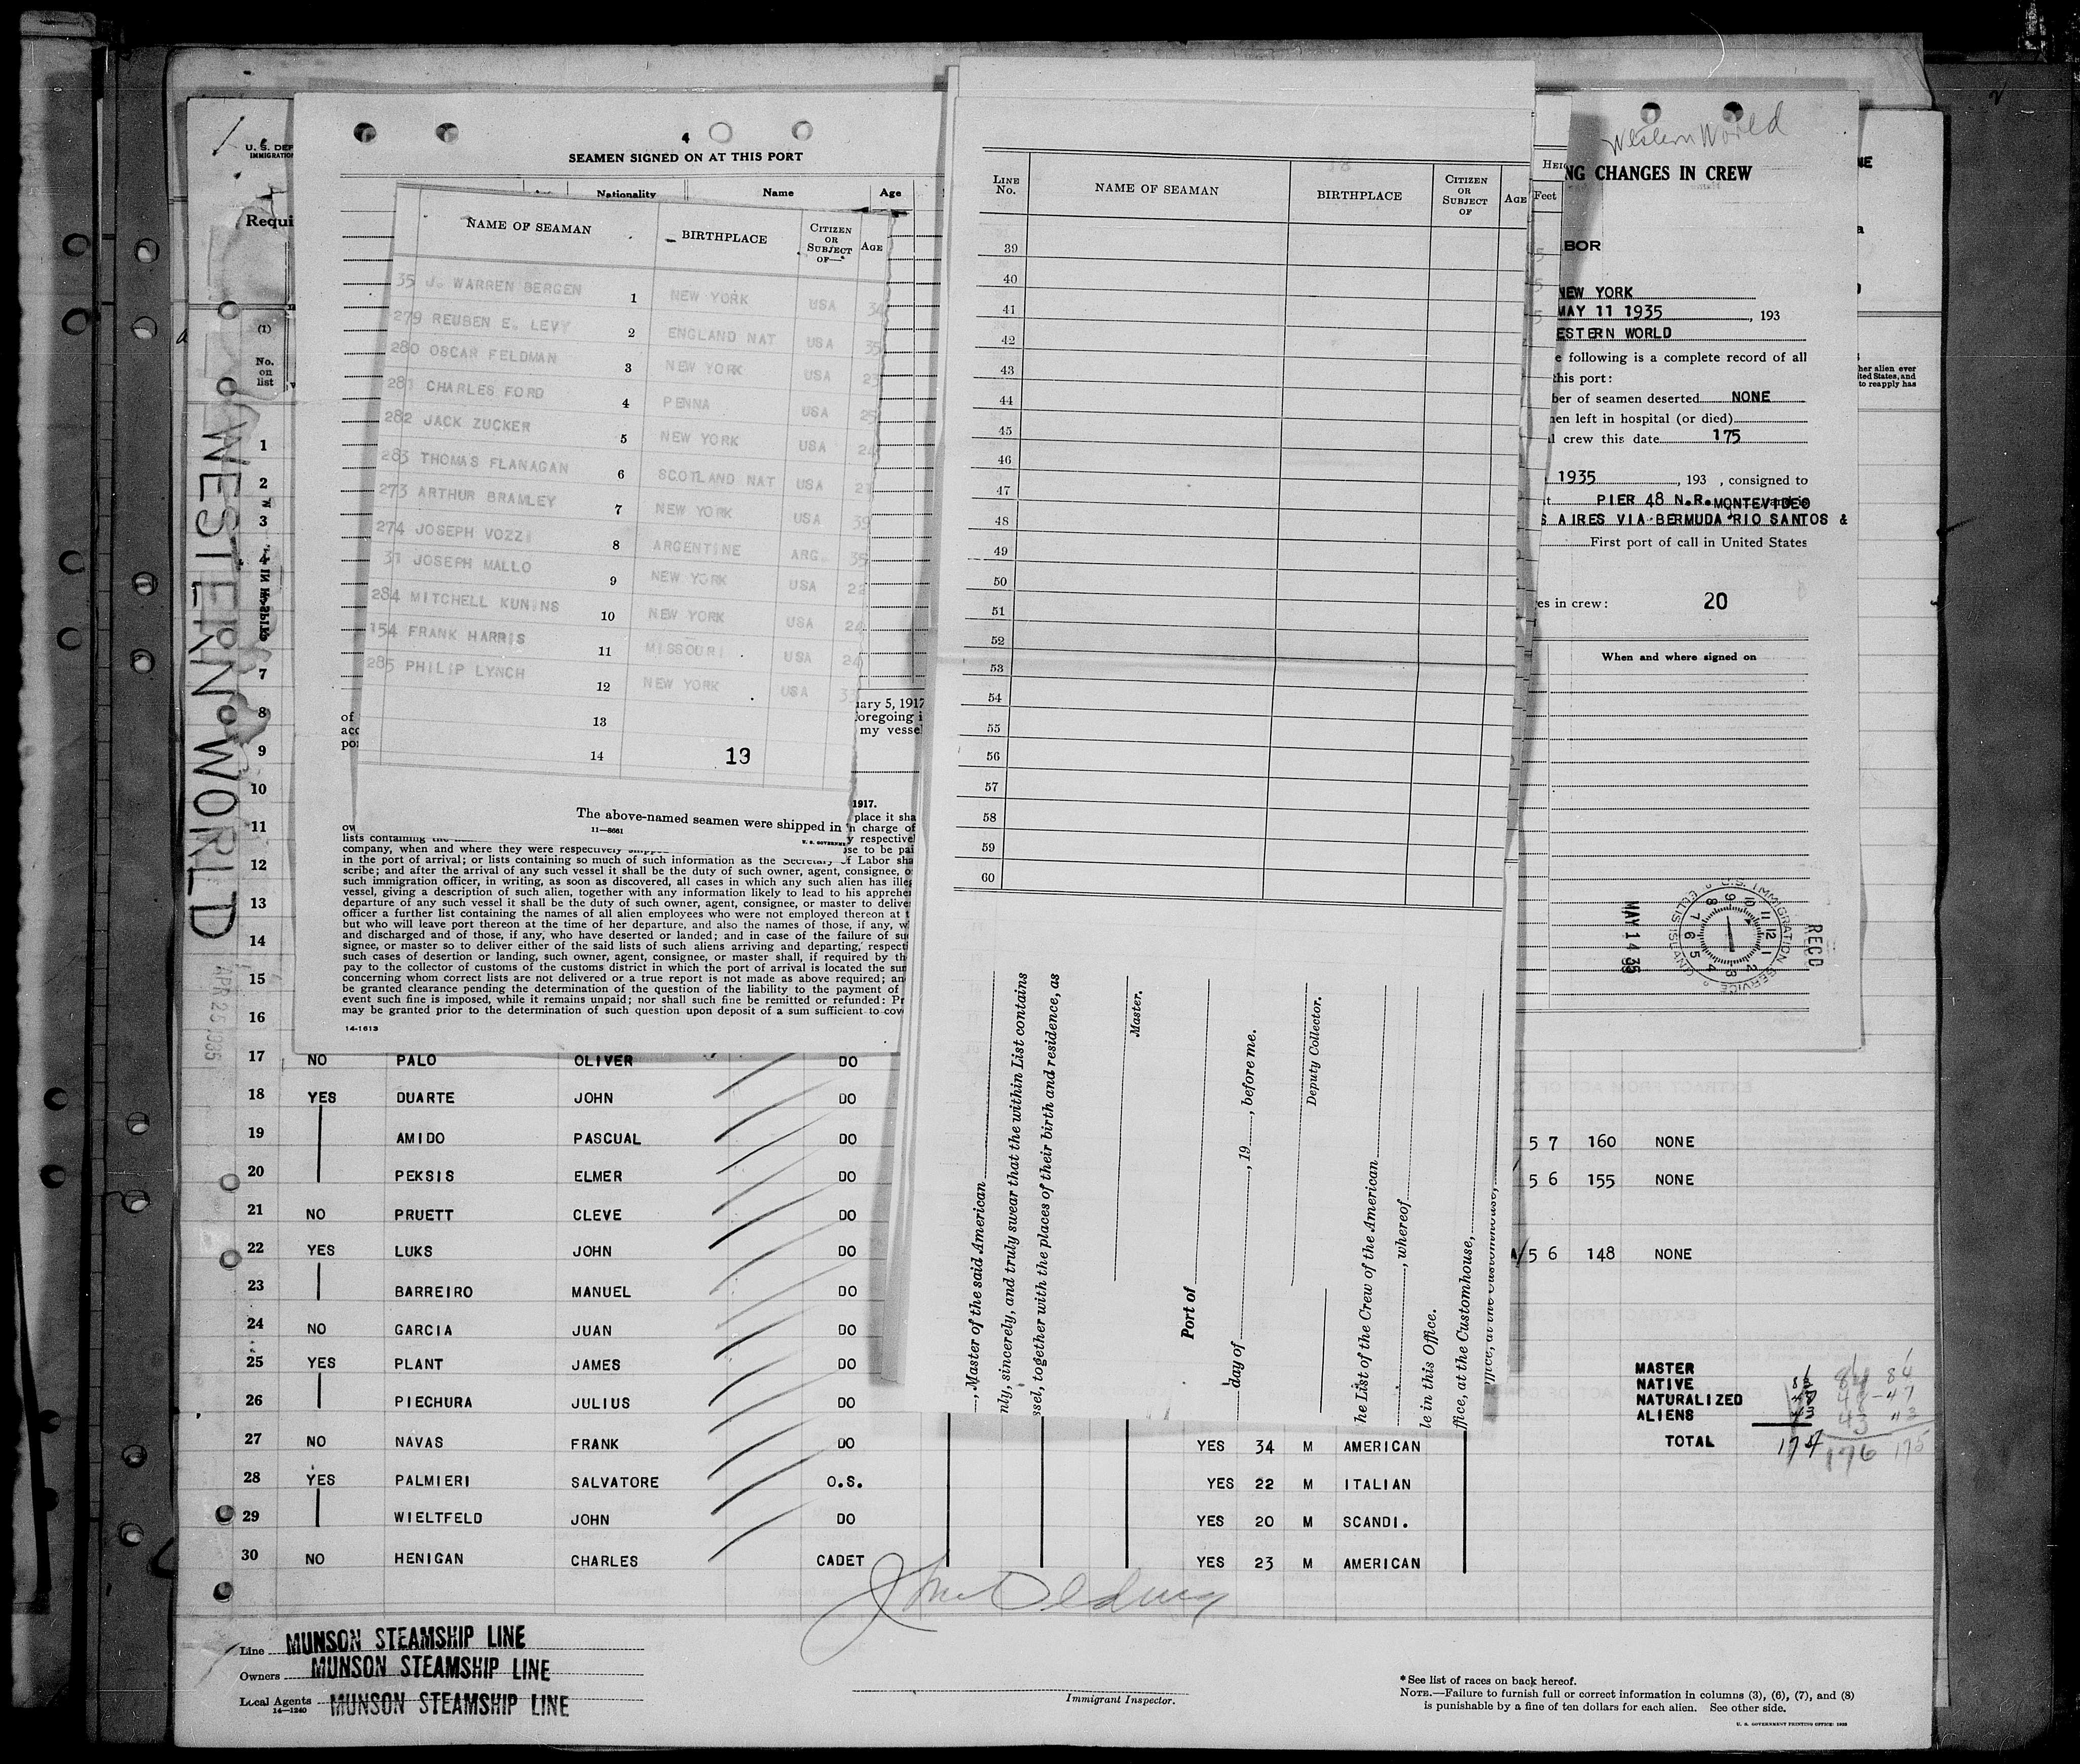 U. S. DEP
IMMIGRATION
Requi
(1)
No.
on
list
WESTERN WORLD
APR 25 1935
4
SEAMEN SIGNED ON AT THIS PORT
Nationality Name Age
NAME OF SEAMAN BIRTHPLACE CITIZEN OR SUBJECT OF AGE
35 J. WARREN BERGEN 1 NEW YORK USA 34
279 REUBEN E. LEVY 2 ENGLAND NAT USA 35
280 OSCAR FELDMAN 3 NEW YORK USA 23
281 CHARLES FORD 4 PENNA USA 25
282 JACK ZUCKER 5 NEW YORK USA 24
283 THOMAS FLANAGAN 6 SCOTLAND NAT USA 21
273 ARTHUR BRAMLEY 7 NEW YORK USA 39
274 JOSEPH VOZZI 8 ARGENTINE ARG. 35
31 JOSEPH MALLO 9 NEW YORK USA 22
284 MITCHELL KUNINS 10 NEW YORK USA 24
154 FRANK HARRIS 11 MISSOURI USA 24
285 PHILIP LYNCH 12 NEW YORK USA 33
13
14 13
The above-named seamen were shipped in
11—8661
U. S. GOVERNME
uary 5, 1917
foregoing i
my vesse
of
acc
por
1917.
place it sha
n charge of
lists containing the
y respective
company, when and where they were respectively
ose to be pai
in the port of arrival; or lists containing so much of such information as the Secretary of Labor sha
scribe; and after the arrival of any such vessel it shall be the duty of such owner, agent, consignee, o
such immigration officer, in writing, as soon as discovered, all cases in which any such alien has illeg
vessel, giving a description of such alien, together with any information likely to lead to his apprehen
departure of any such vessel it shall be the duty of such owner, agent, consignee, or master to deliver
officer a further list containing the names of all alien employees who were not employed thereon at t
but who will leave port thereon at the time of her departure, and also the names of those, if any, w
and discharged and of those, if any, who have deserted or landed; and in case of the failure of su
signee, or master so to deliver either of the said lists of such aliens arriving and departing, respecti
such cases of desertion or landing, such owner, agent, consignee, or master shall, if required by th
pay to the collector of customs of the customs district in which the port of arrival is located the sum
concerning whom correct lists are not delivered or a true report is not made as above required; an
be granted clearance pending the determination of the question of the liability to the payment of
event such fine is imposed, while it remains unpaid; nor shall such fine be remitted or refunded: Pr
may be granted prior to the determination of such question upon deposit of a sum sufficient to cov
14-1613
LINE No. NAME OF SEAMAN BIRTHPLACE CITIZEN OR SUBJECT OF AGE
39
40
41
42
43
44
45
46
47
48
49
50
51
52
53
54
55
56
57
58
59
60
, Master of the said American
nly, sincerely, and truly swear that the within List contains
ssel, together with the places of their birth and residence, as
Master.
Port of
day of , 19 , before me.
Deputy Collector.
he List of the Crew of the American
, whereof
le in this Office.
ffice, at the Customhouse,
ffice, at the Customhouse,
HEIG
Feet
Western World
NG CHANGES IN CREW
BOR
NEW YORK
MAY 11 1935 , 193
ESTERN WORLD
e following is a complete record of all
this port:
ber of seamen deserted NONE
men left in hospital (or died)
l crew this date 175
1935 , 193 , consigned to
t PIER 48 N.R. MONTEVIDEO
S AIRES VIA BERMUDA RIO SANTOS &
First port of call in United States
es in crew: 20
When and where signed on
RECD
U.S. IMMIGRATION SERVICE
ELLIS ISLAND
MAY 14 35
her alien ever
ited States, and
to reapply has
1
2
3
4
7
8
9
10
11
12
13
14
15
16
17 NO PALO OLIVER DO
18 YES DUARTE JOHN DO
19 AMIDO PASCUAL DO 5 7 160 NONE
20 PEKSIS ELMER DO 5 6 155 NONE
21 NO PRUETT CLEVE DO
22 YES LUKS JOHN DO 5 6 148 NONE
23 BARREIRO MANUEL DO
24 NO GARCIA JUAN DO
25 YES PLANT JAMES DO
26 PIECHURA JULIUS DO
27 NO NAVAS FRANK DO YES 34 M AMERICAN
28 YES PALMIERI SALVATORE O.S. YES 22 M ITALIAN
29 WIELTFELD JOHN DO YES 20 M SCANDI.
30 NO HENIGAN CHARLES CADET YES 23 M AMERICAN
MASTER 1
NATIVE 84 84
NATURALIZED 48 - 47
ALIENS 43 43
TOTAL 174 176 175
Line MUNSON STEAMSHIP LINE
Owners MUNSON STEAMSHIP LINE
Local Agents MUNSON STEAMSHIP LINE
14—1240
Immigrant Inspector.
*See list of races on back hereof.
NOTE.—Failure to furnish full or correct information in columns (3), (6), (7), and (8)
is punishable by a fine of ten dollars for each alien. See other side.
U. S. GOVERNMENT PRINTING OFFICE: 1933